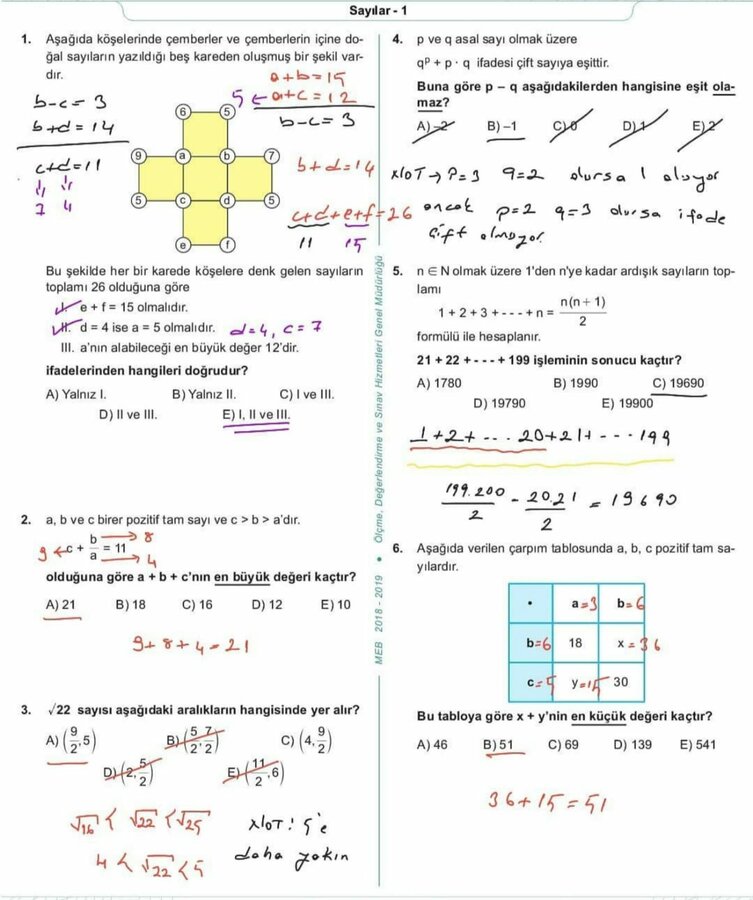 Sayılar - 1
1. Aşağıda köşelerinde çemberler ve çemberlerin içine do-
ğal sayıların yazıldığı beş kareden oluşmuş bir şekil var-
dır.
a+b=15
5 ← a+c=12
b-c=3
b-c=3
b+d=14
c+d=11
7 4
6 5
9 a b 7
5 c d 5
e f
b+d=14
c+d+e+f=26
11 15
Bu şekilde her bir karede köşelere denk gelen sayıların
toplamı 26 olduğuna göre
I. e + f = 15 olmalıdır.
II. d = 4 ise a = 5 olmalıdır. d=4, c=7
III. a'nın alabileceği en büyük değer 12'dir.
ifadelerinden hangileri doğrudur?
A) Yalnız I. B) Yalnız II. C) I ve III.
D) II ve III. E) I, II ve III.
2. a, b ve c birer pozitif tam sayı ve c > b > a'dır.
9 ← c + b/a = 11 → 8 → 4
olduğuna göre a + b + c'nın en büyük değeri kaçtır?
A) 21 B) 18 C) 16 D) 12 E) 10
9+8+4=21
3. √22 sayısı aşağıdaki aralıkların hangisinde yer alır?
A) (9/2, 5) B) (5/2, 7/2) C) (4, 9/2)
D) (2, 5/2) E) (11/2, 6)
√16 < √22 < √25 NOT: 5'e
4 < √22 < 5 daha yakın
MEB 2018 - 2019 • Ölçme, Değerlendirme ve Sınav Hizmetleri Genel Müdürlüğü
4. p ve q asal sayı olmak üzere
q^p + p · q ifadesi çift sayıya eşittir.
Buna göre p – q aşağıdakilerden hangisine eşit ola-
maz?
A) –2 B) –1 C) 0 D) 1 E) 2
NOT → P=3 q=2 olursa 1 oluyor
ancak p=2 q=3 olursa ifade
çift olmuyor.
5. n ∈ N olmak üzere 1'den n'ye kadar ardışık sayıların top-
lamı
1 + 2 + 3 + - - - + n = n(n + 1)/2
formülü ile hesaplanır.
21 + 22 + - - - + 199 işleminin sonucu kaçtır?
A) 1780 B) 1990 C) 19690
D) 19790 E) 19900
1+2+ --- 20+21+ --- 199
199.200/2 - 20.21/2 = 19690
6. Aşağıda verilen çarpım tablosunda a, b, c pozitif tam sa-
yılardır.
• a=3 b=6
b=6 18 x=36
c=5 y=15 30
Bu tabloya göre x + y'nin en küçük değeri kaçtır?
A) 46 B) 51 C) 69 D) 139 E) 541
36+15=51